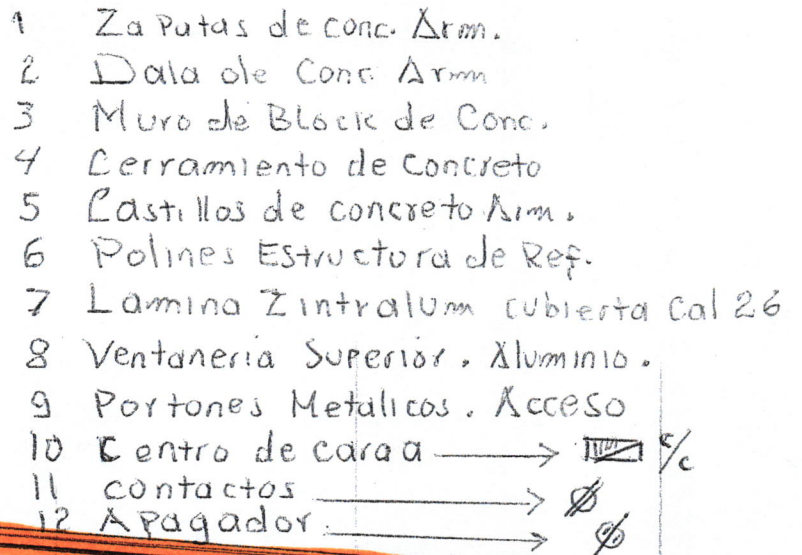 1 Zaputas de conc. Arm.
2 Dala de Conc Arm
3 Muro de Block de Conc.
4 Cerramiento de Concreto
5 Castillos de concreto Arm.
6 Polines Estructura de Ref.
7 Lamina Zintralum cubierta Cal 26
8 Ventaneria Superior. Aluminio.
9 Portones Metalicos. Acceso
10 Centro de carga c/c
11 contactos
12 Apagador.